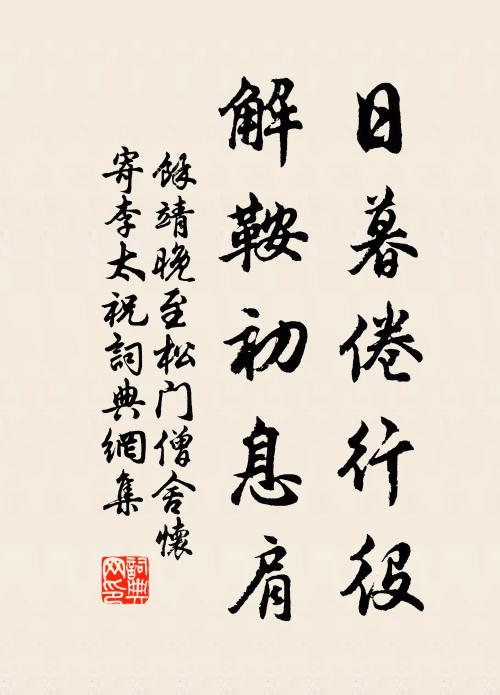 日暮倦行役
解鞍初息肩
餘靖晚至松门僧舍懷
寄李太祝詞典網集
詞典
网印